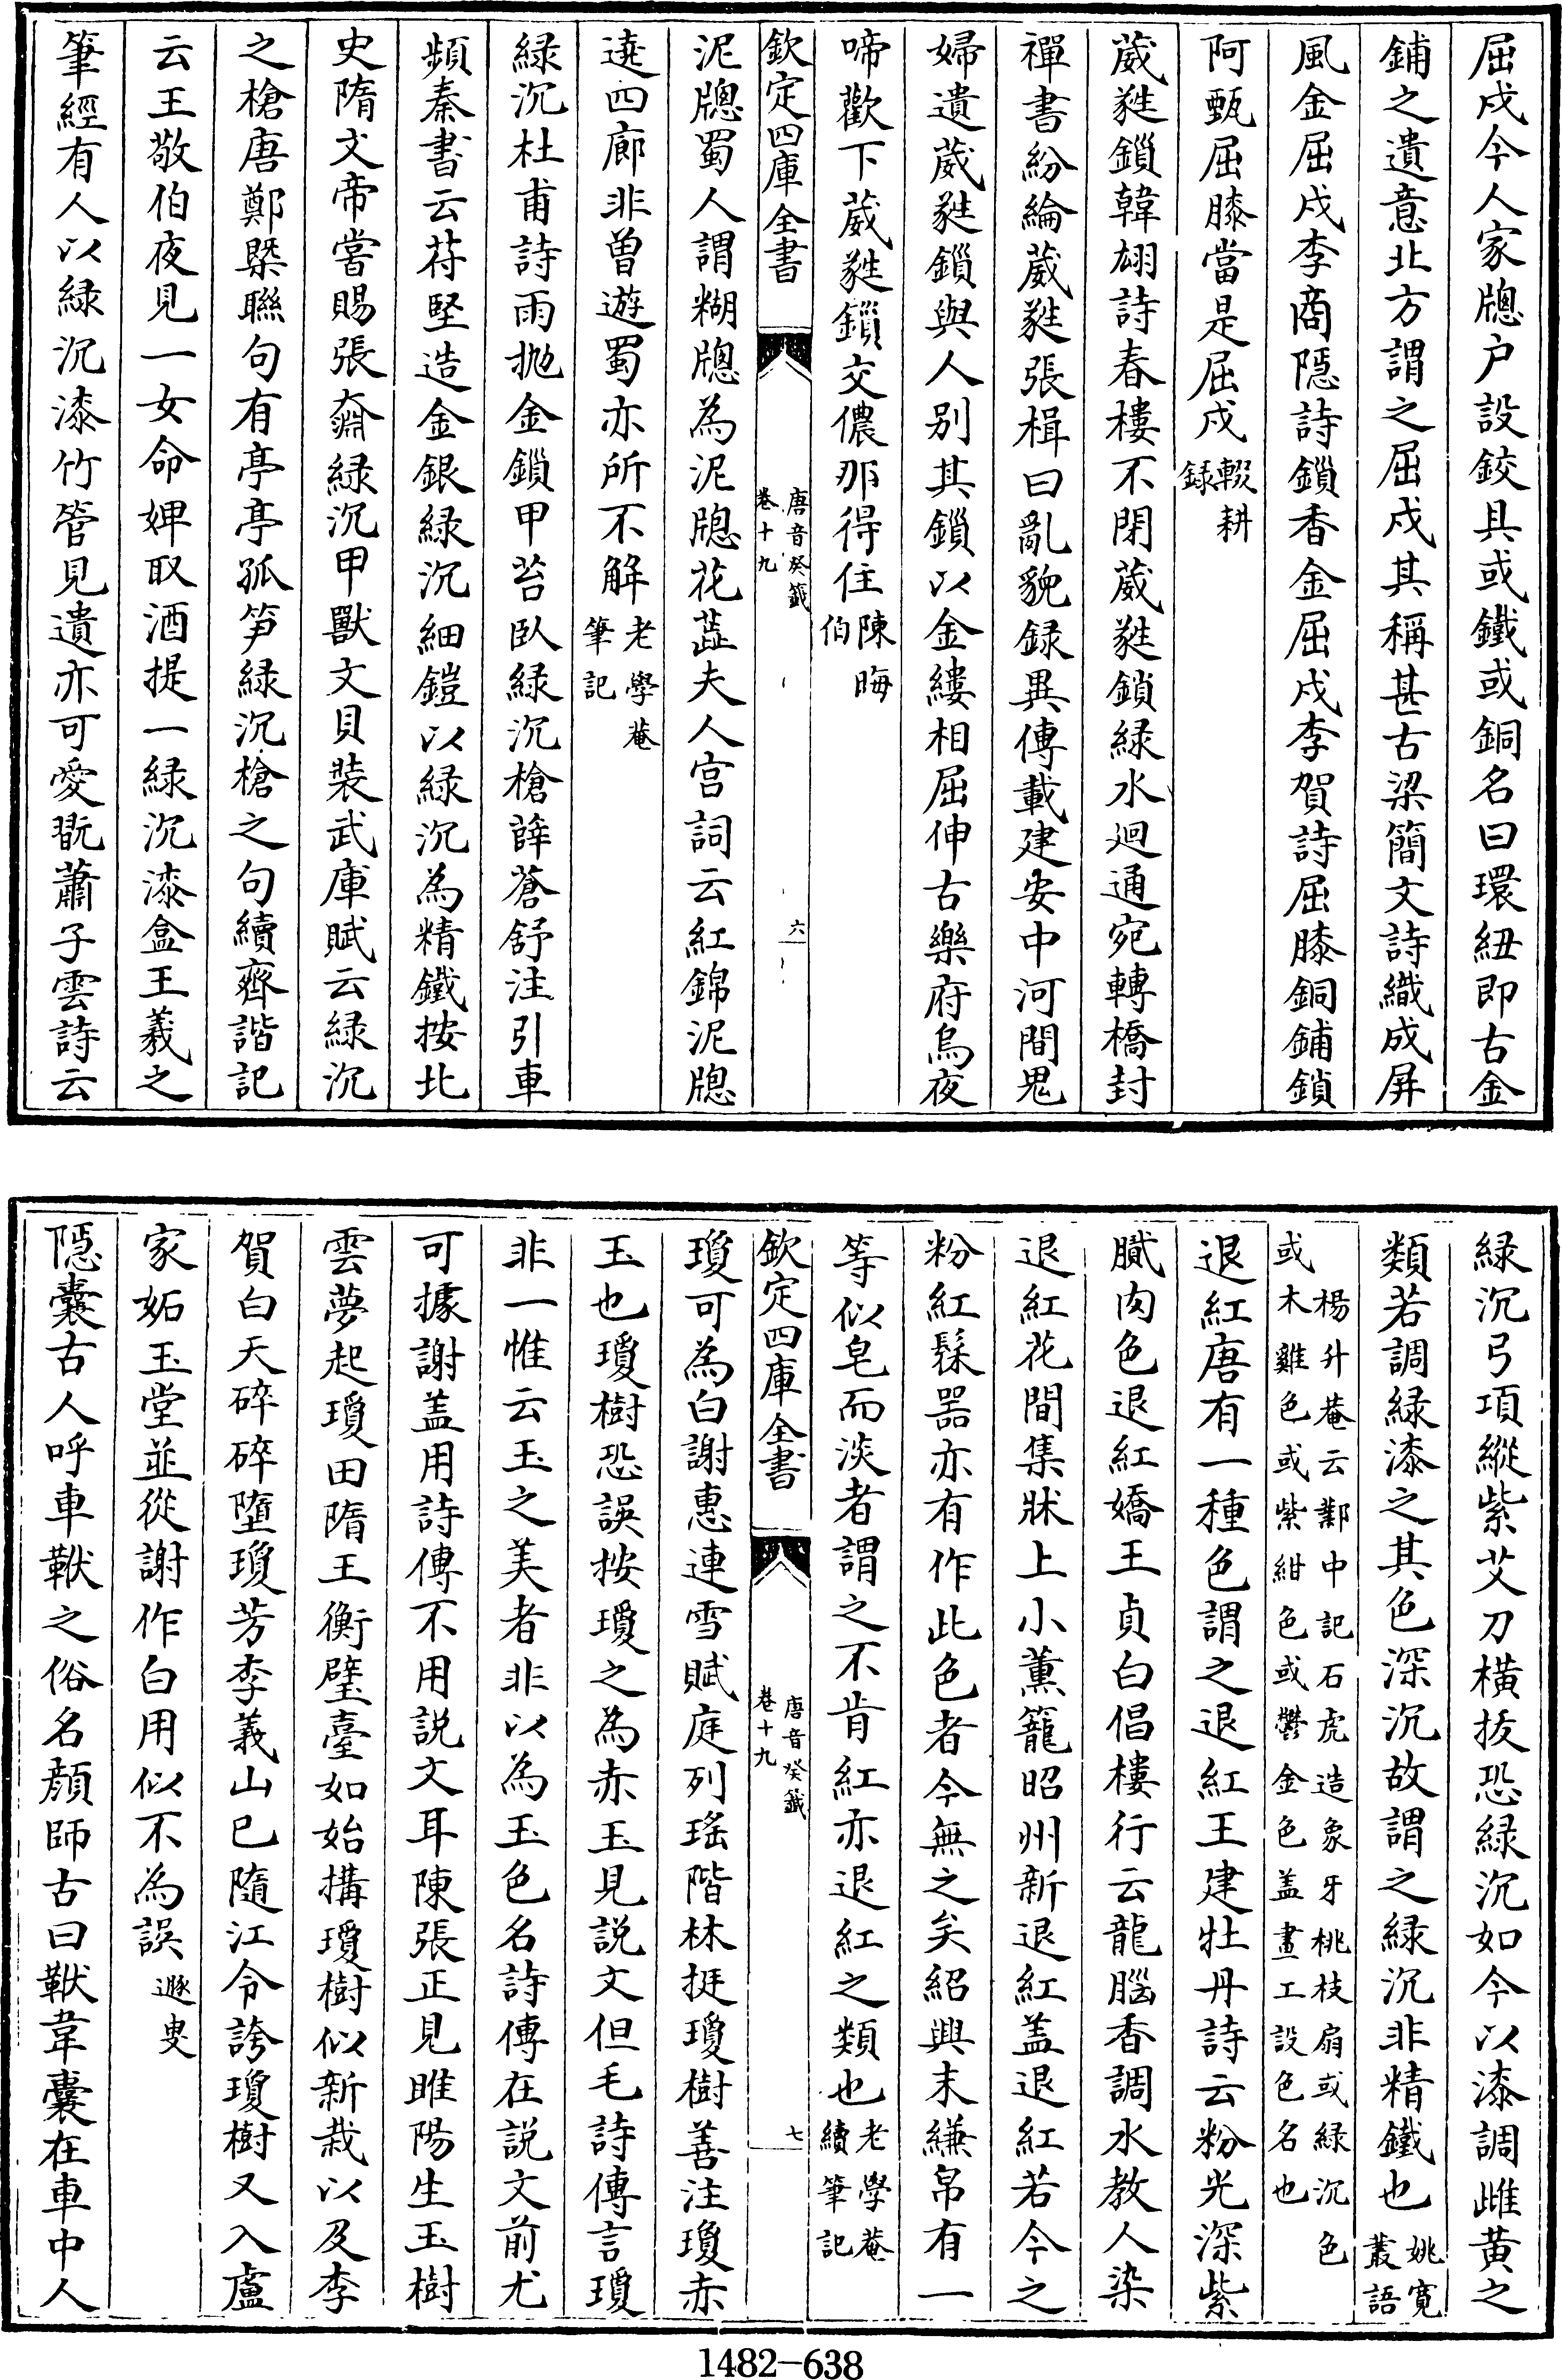 屈戍今人家牕户設鉸具或鐵或銅名曰環紐即古金
鋪之遺意北方謂之屈戍其稱甚古梁簡文詩織成屏
風金屈戍李商隱詩鎖香金屈戍李賀詩屈膝銅鋪鎖
阿甄屈膝當是屈戍輟耕録
葳蕤鎻韓翃詩春樓不閉葳蕤鎖緑水廻通宛轉橋封
禪書紛綸葳蕤張楫曰亂貌録異傳載建安中河間鬼
婦遺葳蕤鎻與人别其鎖以金縷相屈伸古樂府烏夜
啼歡下葳蕤鎻交儂那得住陳晦伯
欽定四庫全書 唐音癸籖卷十九 六
泥牕蜀人謂糊牕為泥牕花蕋夫人宫詞云紅錦泥牕
遶四廊非曽遊蜀亦所不解老學菴筆記
緑沉杜甫詩雨抛金鎖甲苔卧緑沉槍薛蒼舒注引車
頻秦書云苻堅造金銀緑沉細鎧以緑沉為精鐵按北
史隋文帝嘗賜張奫緑沉甲獸文貝裝武庫賦云緑沉
之槍唐鄭槩聯句有亭亭孤笋緑沉槍之句續齊諧記
云王敬伯夜見一女命婢取酒提一緑沉漆盒王羲之
筆經有人以緑沉漆竹管見遺亦可愛翫蕭子雲詩云
緑沉弓項縱紫艾刀横拔恐緑沉如今以漆調雌黄之
類若調緑漆之其色深沉故謂之緑沉非精鐵也姚寛叢語
楊升菴云鄴中記石虎造象牙桃枝扇或緑沉色
或木雞色或紫紺色或鬱金色盖畫工設色名也
退紅唐有一種色謂之退紅王建牡丹詩云粉光深紫
膩肉色退紅嬌王貞白倡樓行云龍腦香調水教人染
退紅花間集牀上小薰籠昭州新退紅盖退紅若今之
粉紅髹器亦有作此色者今無之矣紹興末縑帛有一
等似皂而淡者謂之不肯紅亦退紅之類也老學菴續筆記
欽定四庫全書 唐音癸籖卷十九 七
瓊可為白謝惠連雪賦庭列瑤階林挺瓊樹善注瓊赤
玉也瓊樹恐誤按瓊之為赤玉見説文但毛詩傳言瓊
非一惟云玉之美者非以為玉色名詩傳在説文前尤
可據謝盖用詩傳不用説文耳陳張正見睢陽生玉樹
雲夢起瓊田隋王衡璧臺如始搆瓊樹似新栽以及李
賀白天碎碎墮瓊芳李義山已隨江令誇瓊樹又入盧
家妬玉堂並從謝作白用似不為誤遯叟
隱囊古人呼車䩞之俗名顔師古曰䩞韋囊在車中人
1482-638